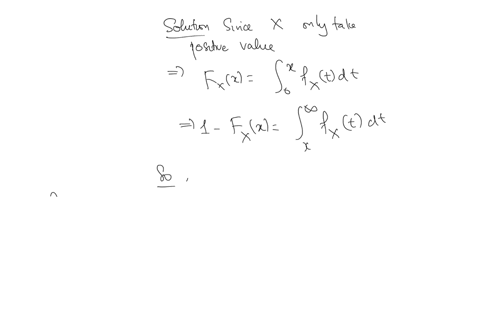 Solution Since X only take
positive value
⇒ F_X(x) = ∫_0^x f_X(t) dt
⇒ 1 - F_X(x) = ∫_x^∞ f_X(t) dt
So,